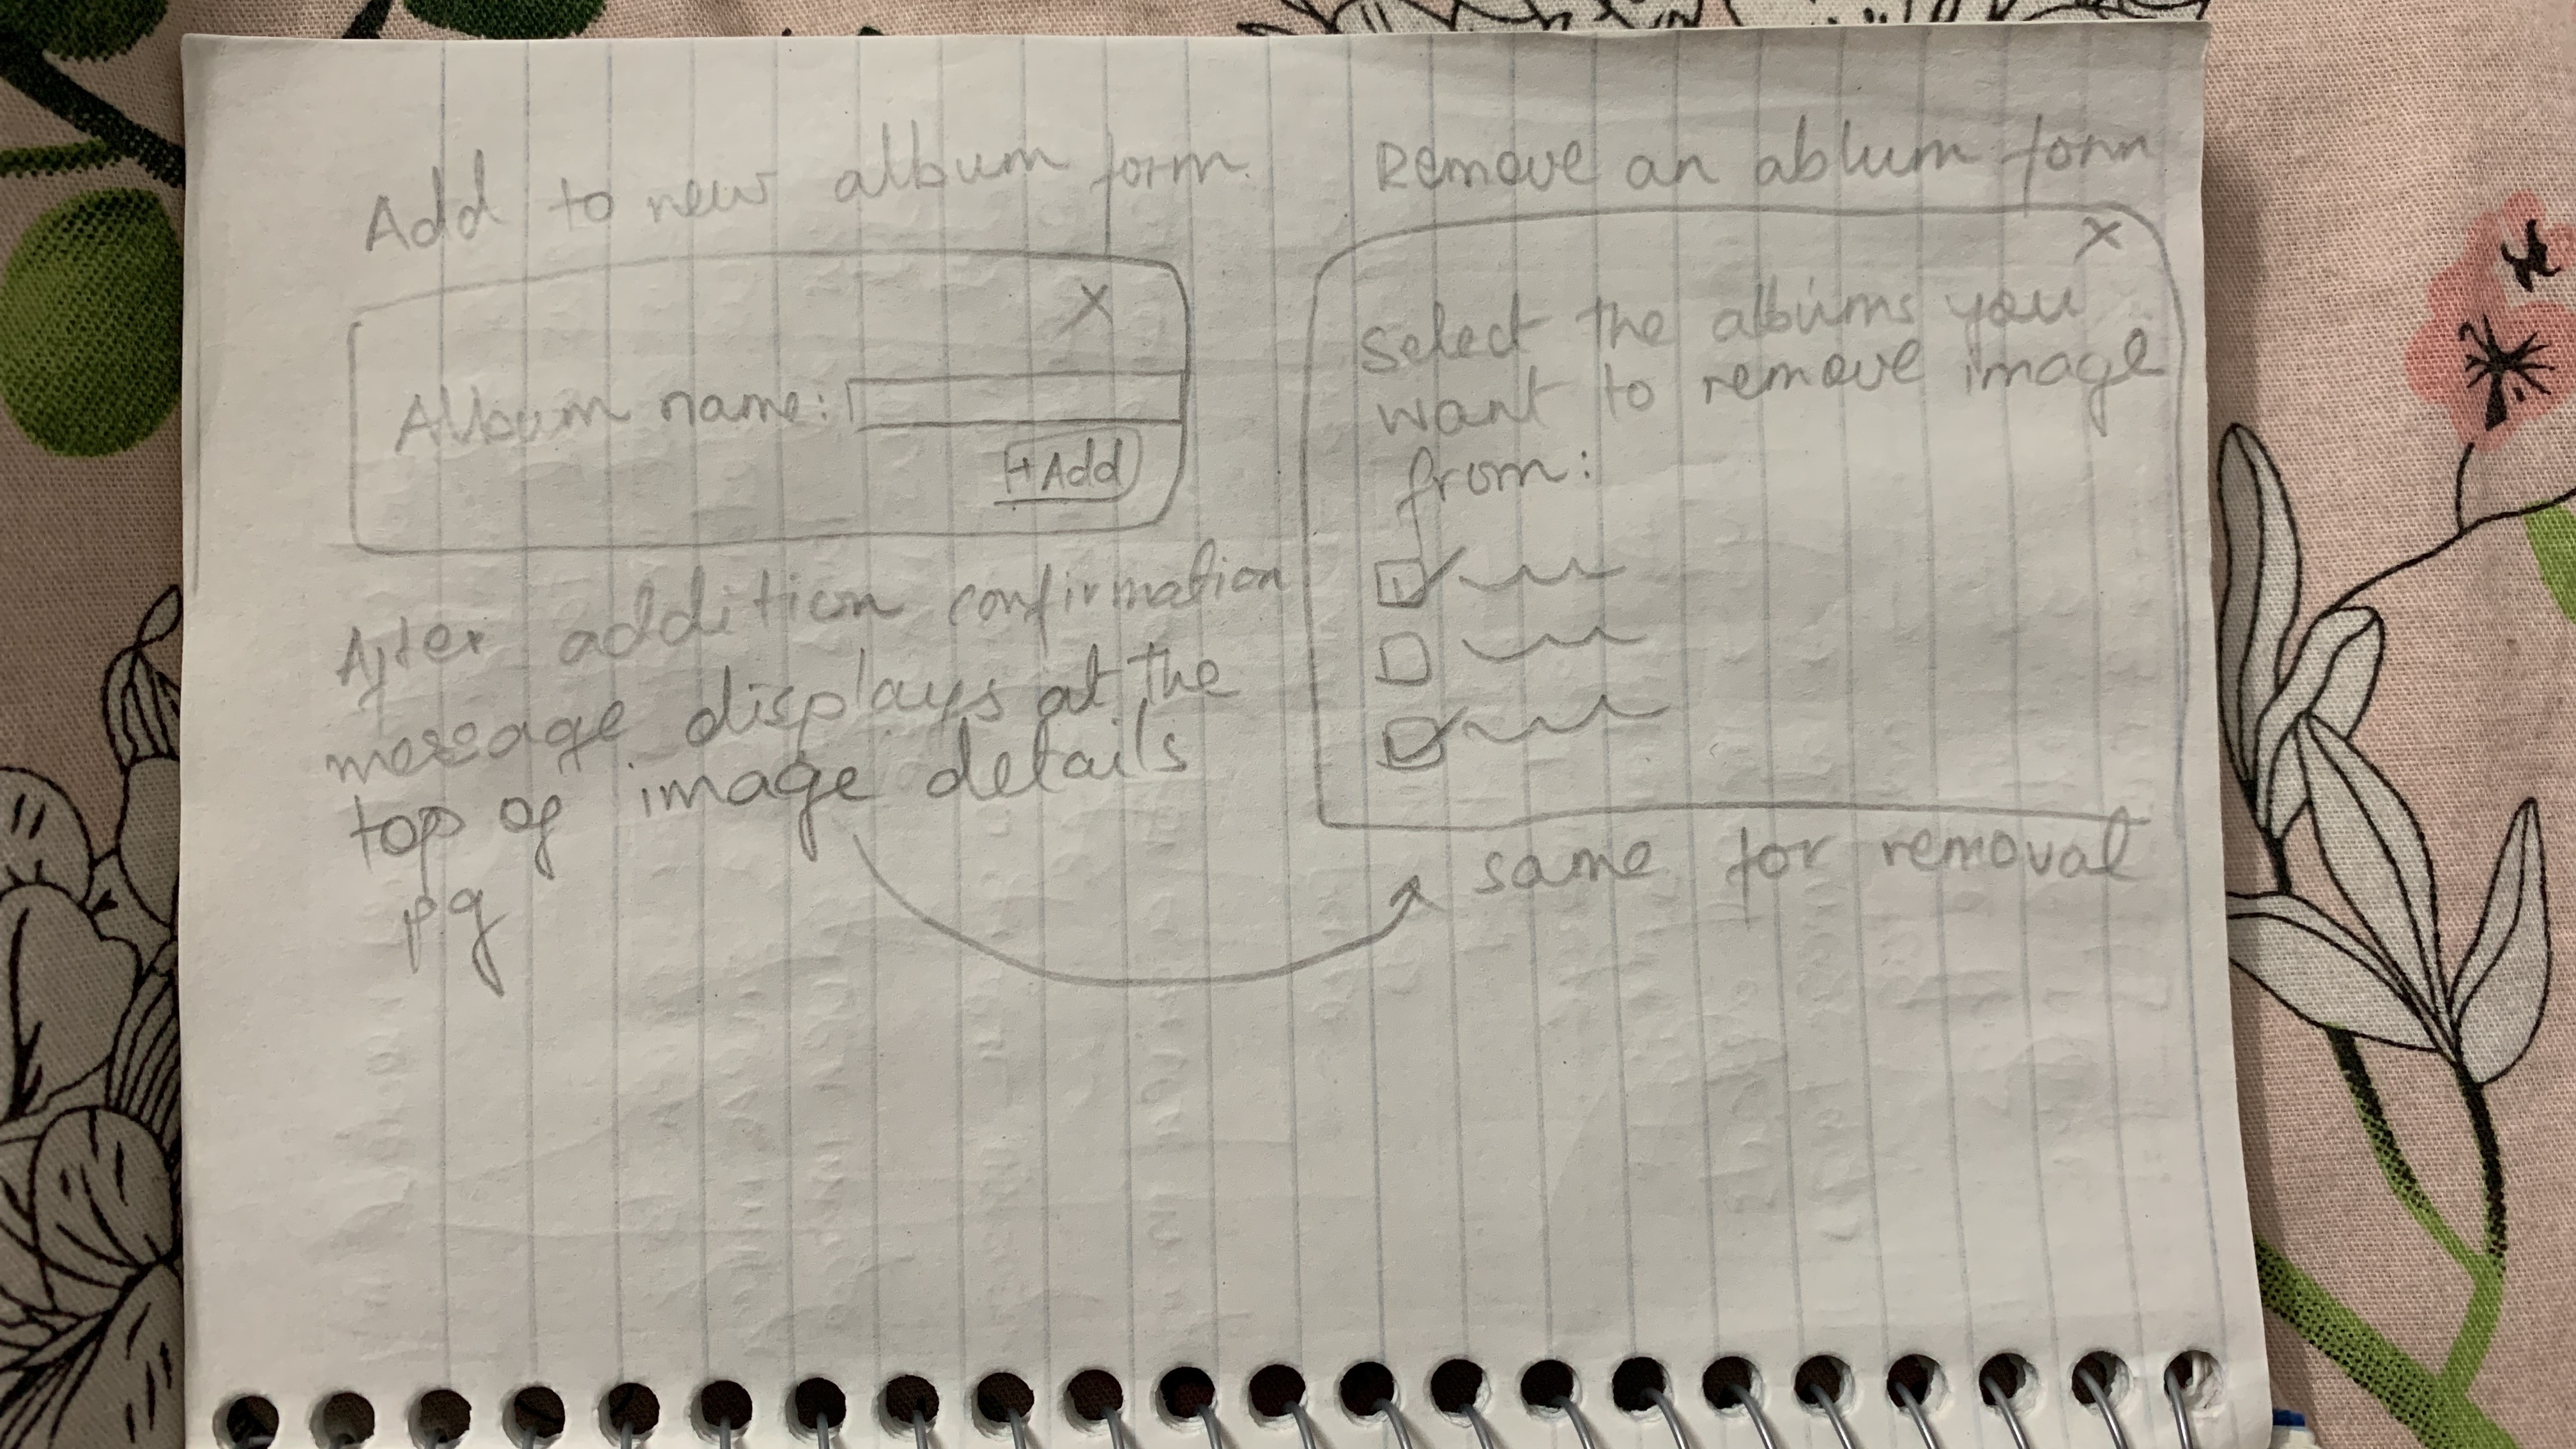 Add to new album form.
X
Album name:
+Add
After addition confirmation
message displays at the
top of image details
pg
Remove an ablum form
X
Select the albums you
want to remove image
from:
same for removal